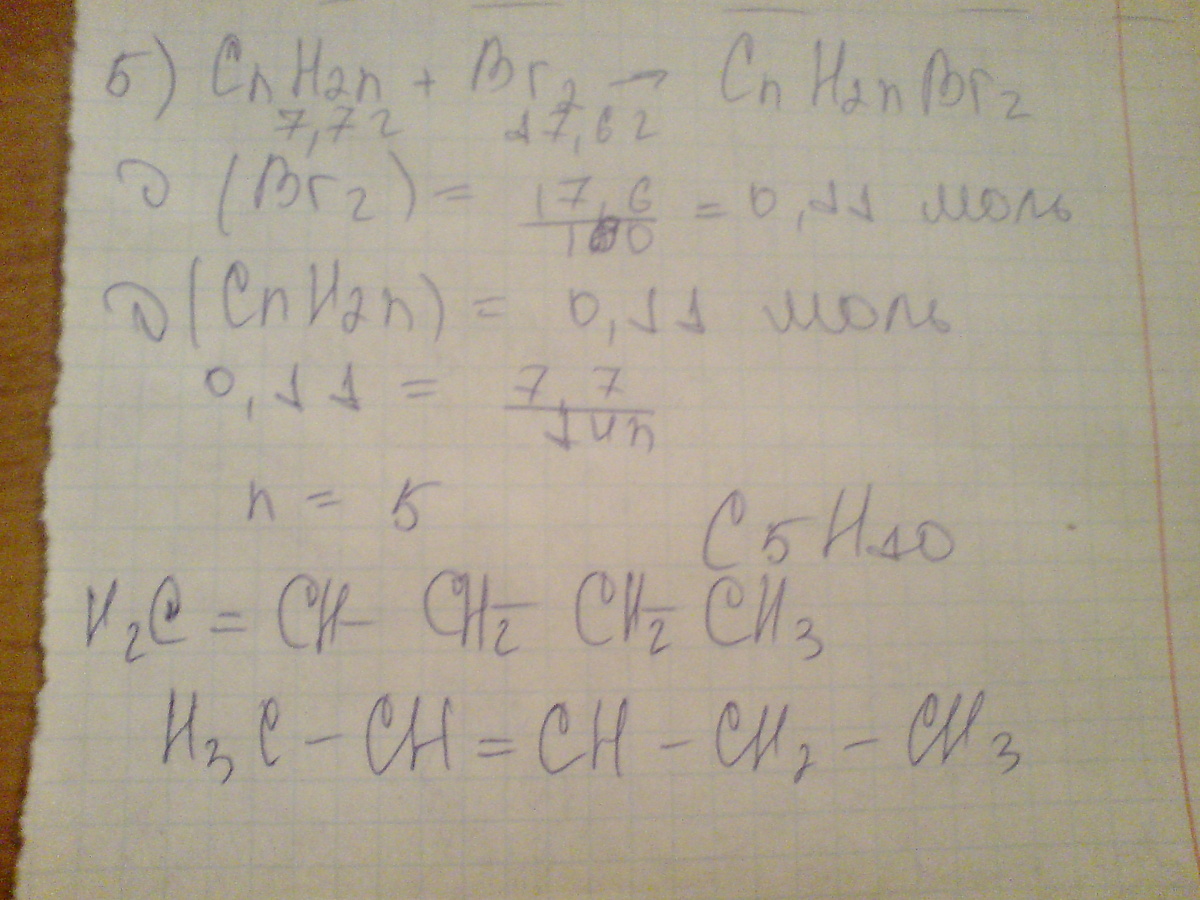 5) CnH2n + Br2 → CnH2nBr2
7,7 г 17,6 г
ν (Br2) = 17,6/160 = 0,11 моль
ν (CnH2n) = 0,11 моль
0,11 = 7,7/14n
n = 5 C5H10
H2C = CH- CH2- CH2- CH3
H3C - CH = CH - CH2 - CH3